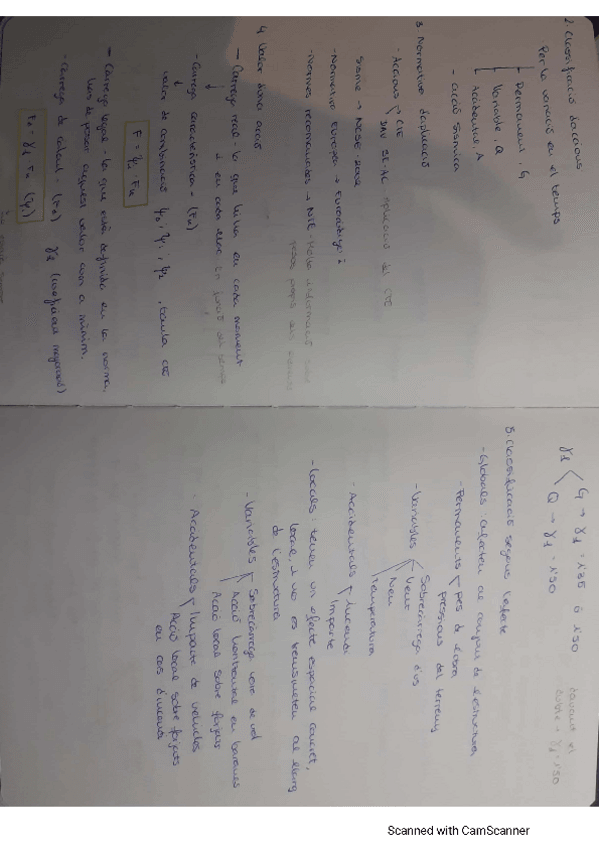 2. Classificació d'accions
Per la variació en el temps
Permanent, G
Variable, Q
Accidental, A
- acció sísmica
3 Normativa d'aplicació
- Accions CTE
DAV SE-AE aplicació del CTE
Sisme → NCSE-2002
- Normativa Europea → Eurocodi
- Normes recomanades → NTE
4 Valor d'una acció
- Càrrega real - la que hi ha en cada moment
i en cada
- Càrrega característica - (Fk)
valor de combinació ψ0, ψ1, ψ2, taula CTE
F = ψi · Fk
- Càrrega legal - la que està definida en la norma,
hem de posar aquest valor com a mínim.
- Càrrega de càlcul - (Fd) γf (coeficient majoració)
Fd = γf · Fk (ψi)
γf
G → γf = 1'35 o 1'50
Q → γf = 1'50
5. Classificació segons l'efecte
- Globals: afecten al conjunt de l'estructura
- Permanents
pes de l'obra
pressions del terreny
- Variables
Sobrecàrrega d'ús
Vent
Neu
Temperatura
- Accidentals
Incendi
Impacte
- Locals: tenen un efecte espacial concret,
local, i no es transmeten al llarg
de l'estructura
- Variables
Sobrecàrrega vora de vol
Acció horitzontal en baranes
Acció local sobre forjats
- Accidentals
Impacte de vehicles
Acció local sobre forjats
en cas d'incendi
Scanned with CamScanner